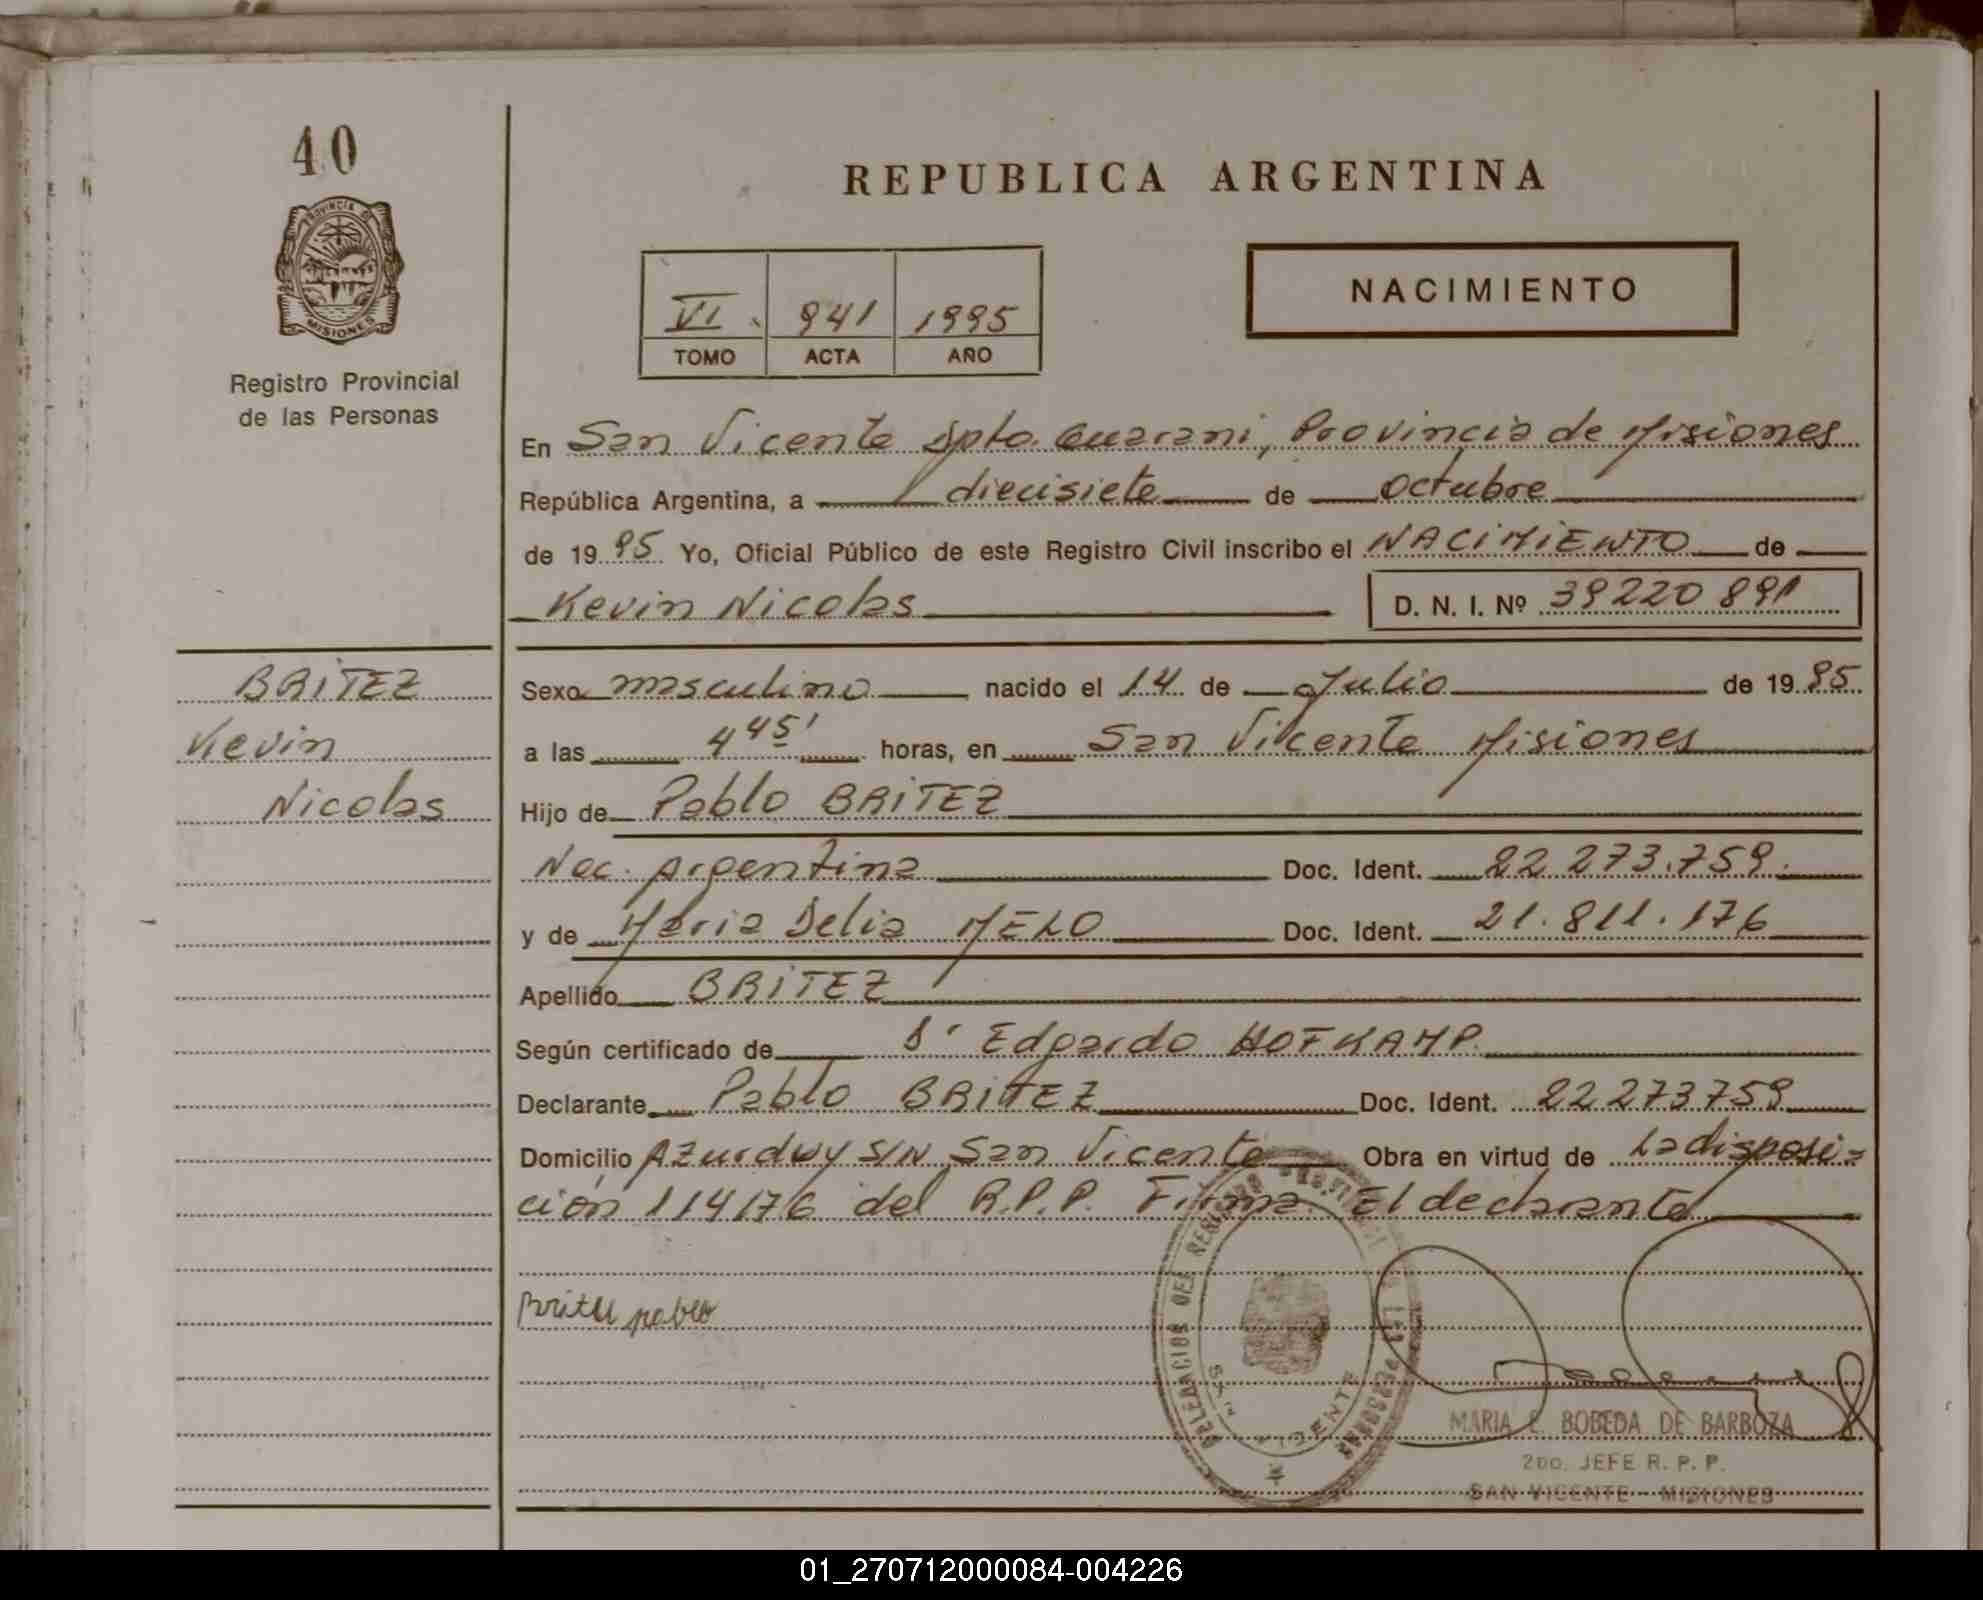 40
PROVINCIA DE
MISIONES
Registro Provincial
de las Personas
REPUBLICA ARGENTINA
VI. 941 1995
TOMO ACTA AÑO
NACIMIENTO
En San Vicente Dpto. Guarani, Provincia de Misiones
República Argentina, a diecisiete de Octubre
de 1995 Yo, Oficial Público de este Registro Civil inscribo el NACIMIENTO de
Kevin Nicolas D. N. I. Nº 39220891
BRITEZ
Kevin
Nicolas
Sexo masculino nacido el 14 de Julio de 1995.
a las 4 45' horas, en San Vicente Misiones
Hijo de Pablo BRITEZ
Nac. Argentina Doc. Ident. 22.273.759.
y de Maria Delia MELO Doc. Ident. 21.811.176
Apellido BRITEZ
Según certificado de Dr Edgardo HOFKAMP.
Declarante Pablo BRITEZ Doc. Ident. 22273759
Domicilio Azurduy S/N San Vicente Obra en virtud de La disposi-
ción 114/76 del R.P.P. Firma: El declarante
Britez pablo
DELEGACION DEL REGISTRO PROVINCIAL DE LAS PERSONAS
SAN VICENTE
MARIA E. BOBEDA DE BARBOZA
2DO. JEFE R. P. P.
SAN VICENTE - MISIONES
01_270712000084-004226